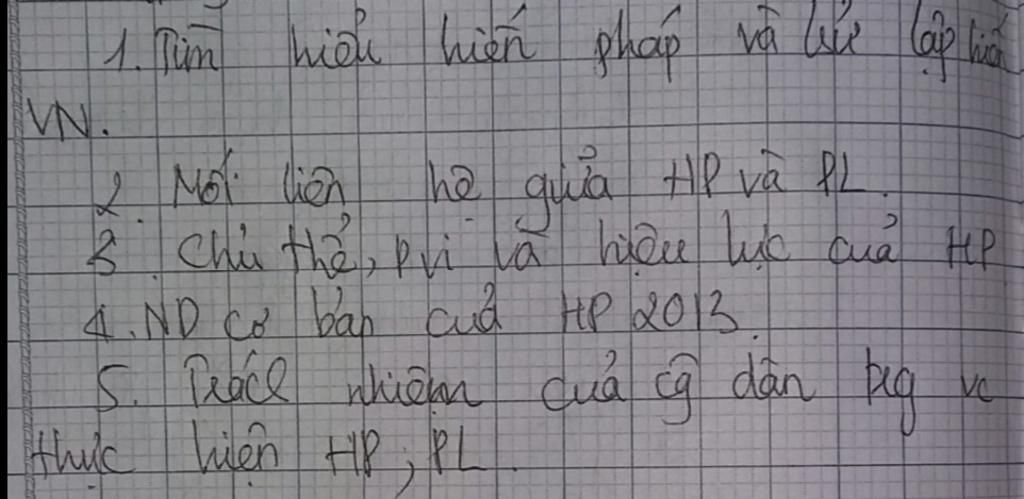 1. Tìm hiểu hiến pháp và lsử lập hiến
VN.
2. Mối liên hệ giữa HP và PL.
3. Chủ thể, pvi và hiệu lực của HP
4. ND cơ bản của HP 2013.
5. Trách nhiệm của cg dân trg vc
thực hiện HP, PL.